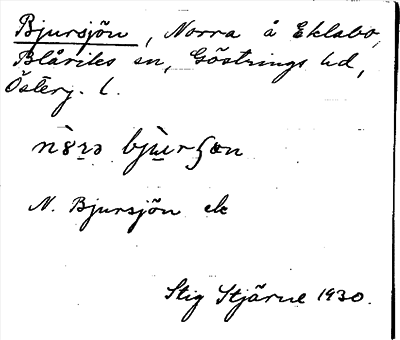 Bjursjön, Norra å Eklabo,
Blåviks sn, Göstrings hd,
Österg. l.
N. Bjursjön ek
Stig Stjärne 1930.